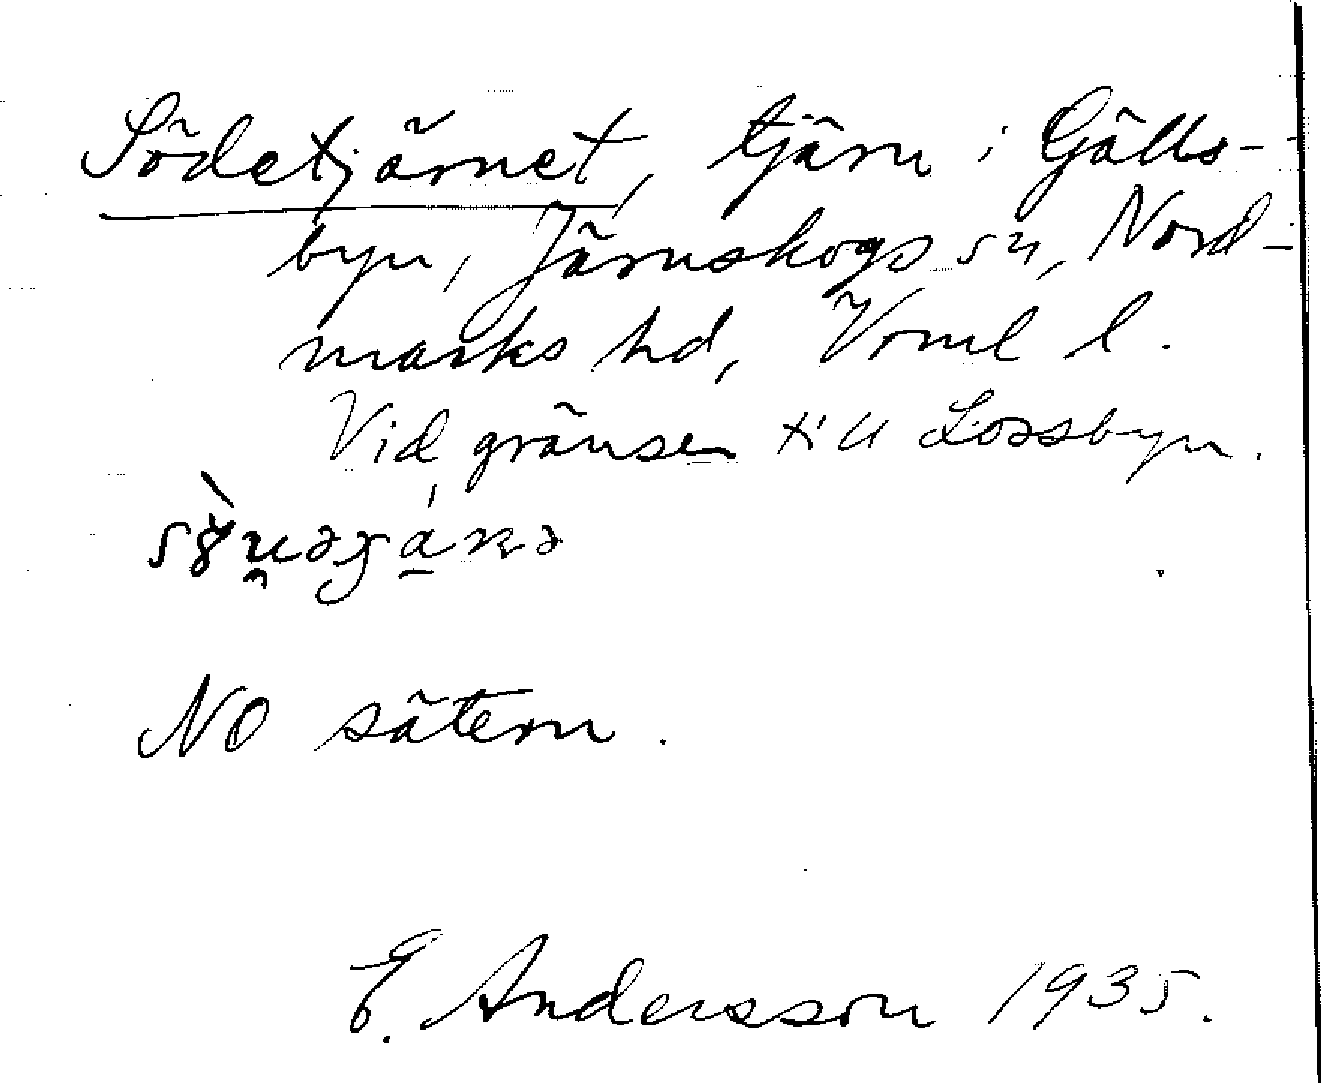 Södetjärnet, tjärn i Gälls-
byn, Järnskogs sn, Nord-
marks hd, Vrml l.
Vid gränsen till Lossbyn.
NO sätern.
E. Andersson 1935.